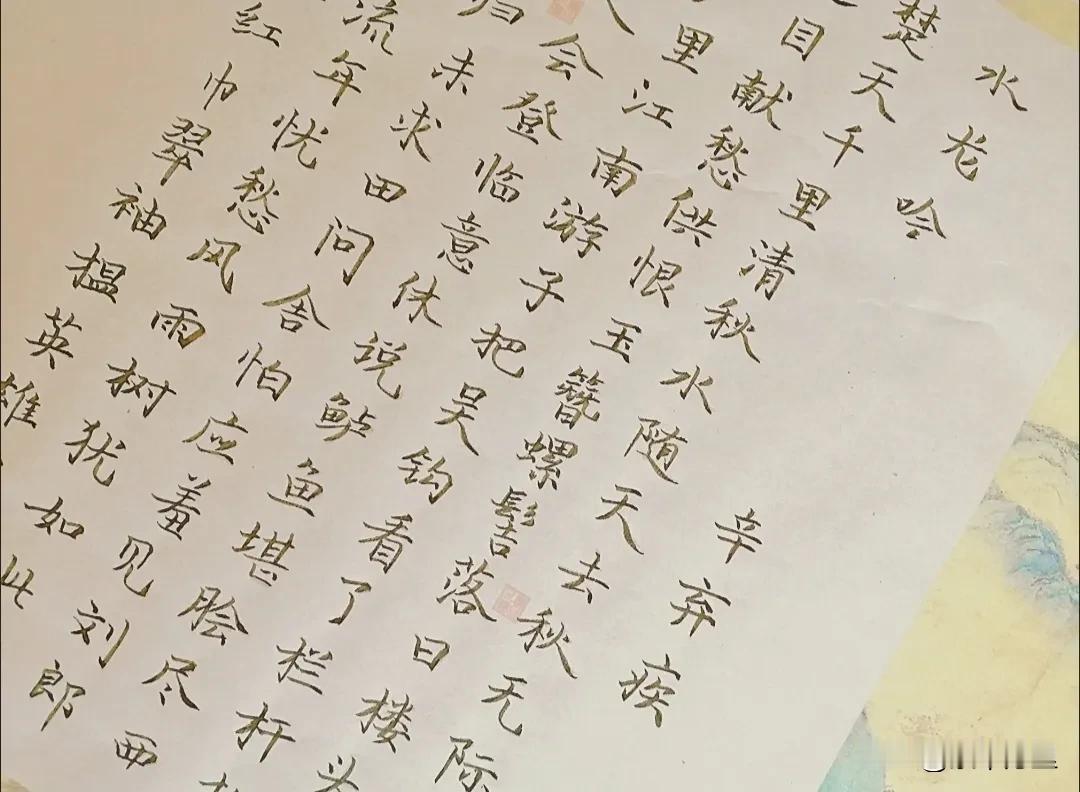 水龙吟 辛弃疾
楚天千里清秋水随天去秋无际
目献愁供恨玉簪螺髻落日楼头
里江南游子把吴钩看了栏杆
会登临意休说鲈鱼堪脍尽西
归未求田问舍怕应羞见刘郎
流年忧愁风雨树犹如此
红巾翠袖揾英雄